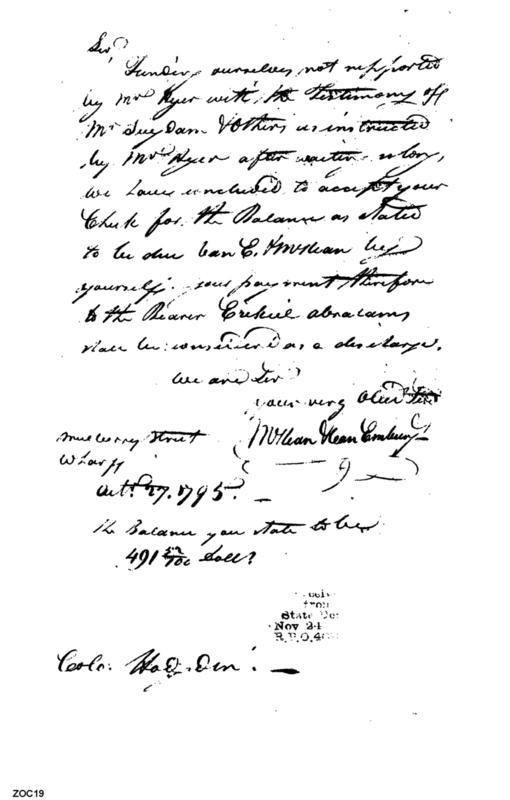 Sir
Finding ourselves not supported
by Mr. Hyer with the Testimony off
Mr Suydam & others as instructed
by Mr. Hyer after waiting so long,
we have concluded to accept your
Check for the Balance as stated
to be due E. & McKean by
yourself. your payment therefore
to the Bearer Ezekiel abrahams
shall be considered as a discharge.
we are Sir
your very Obed
McKean
Mulberry Street
Wharff
Octr. 27. 1795.
The Balance you state to be
491 /100 Doll
from
State
Nov 24
R.P.O.
Colo.
ZOC19